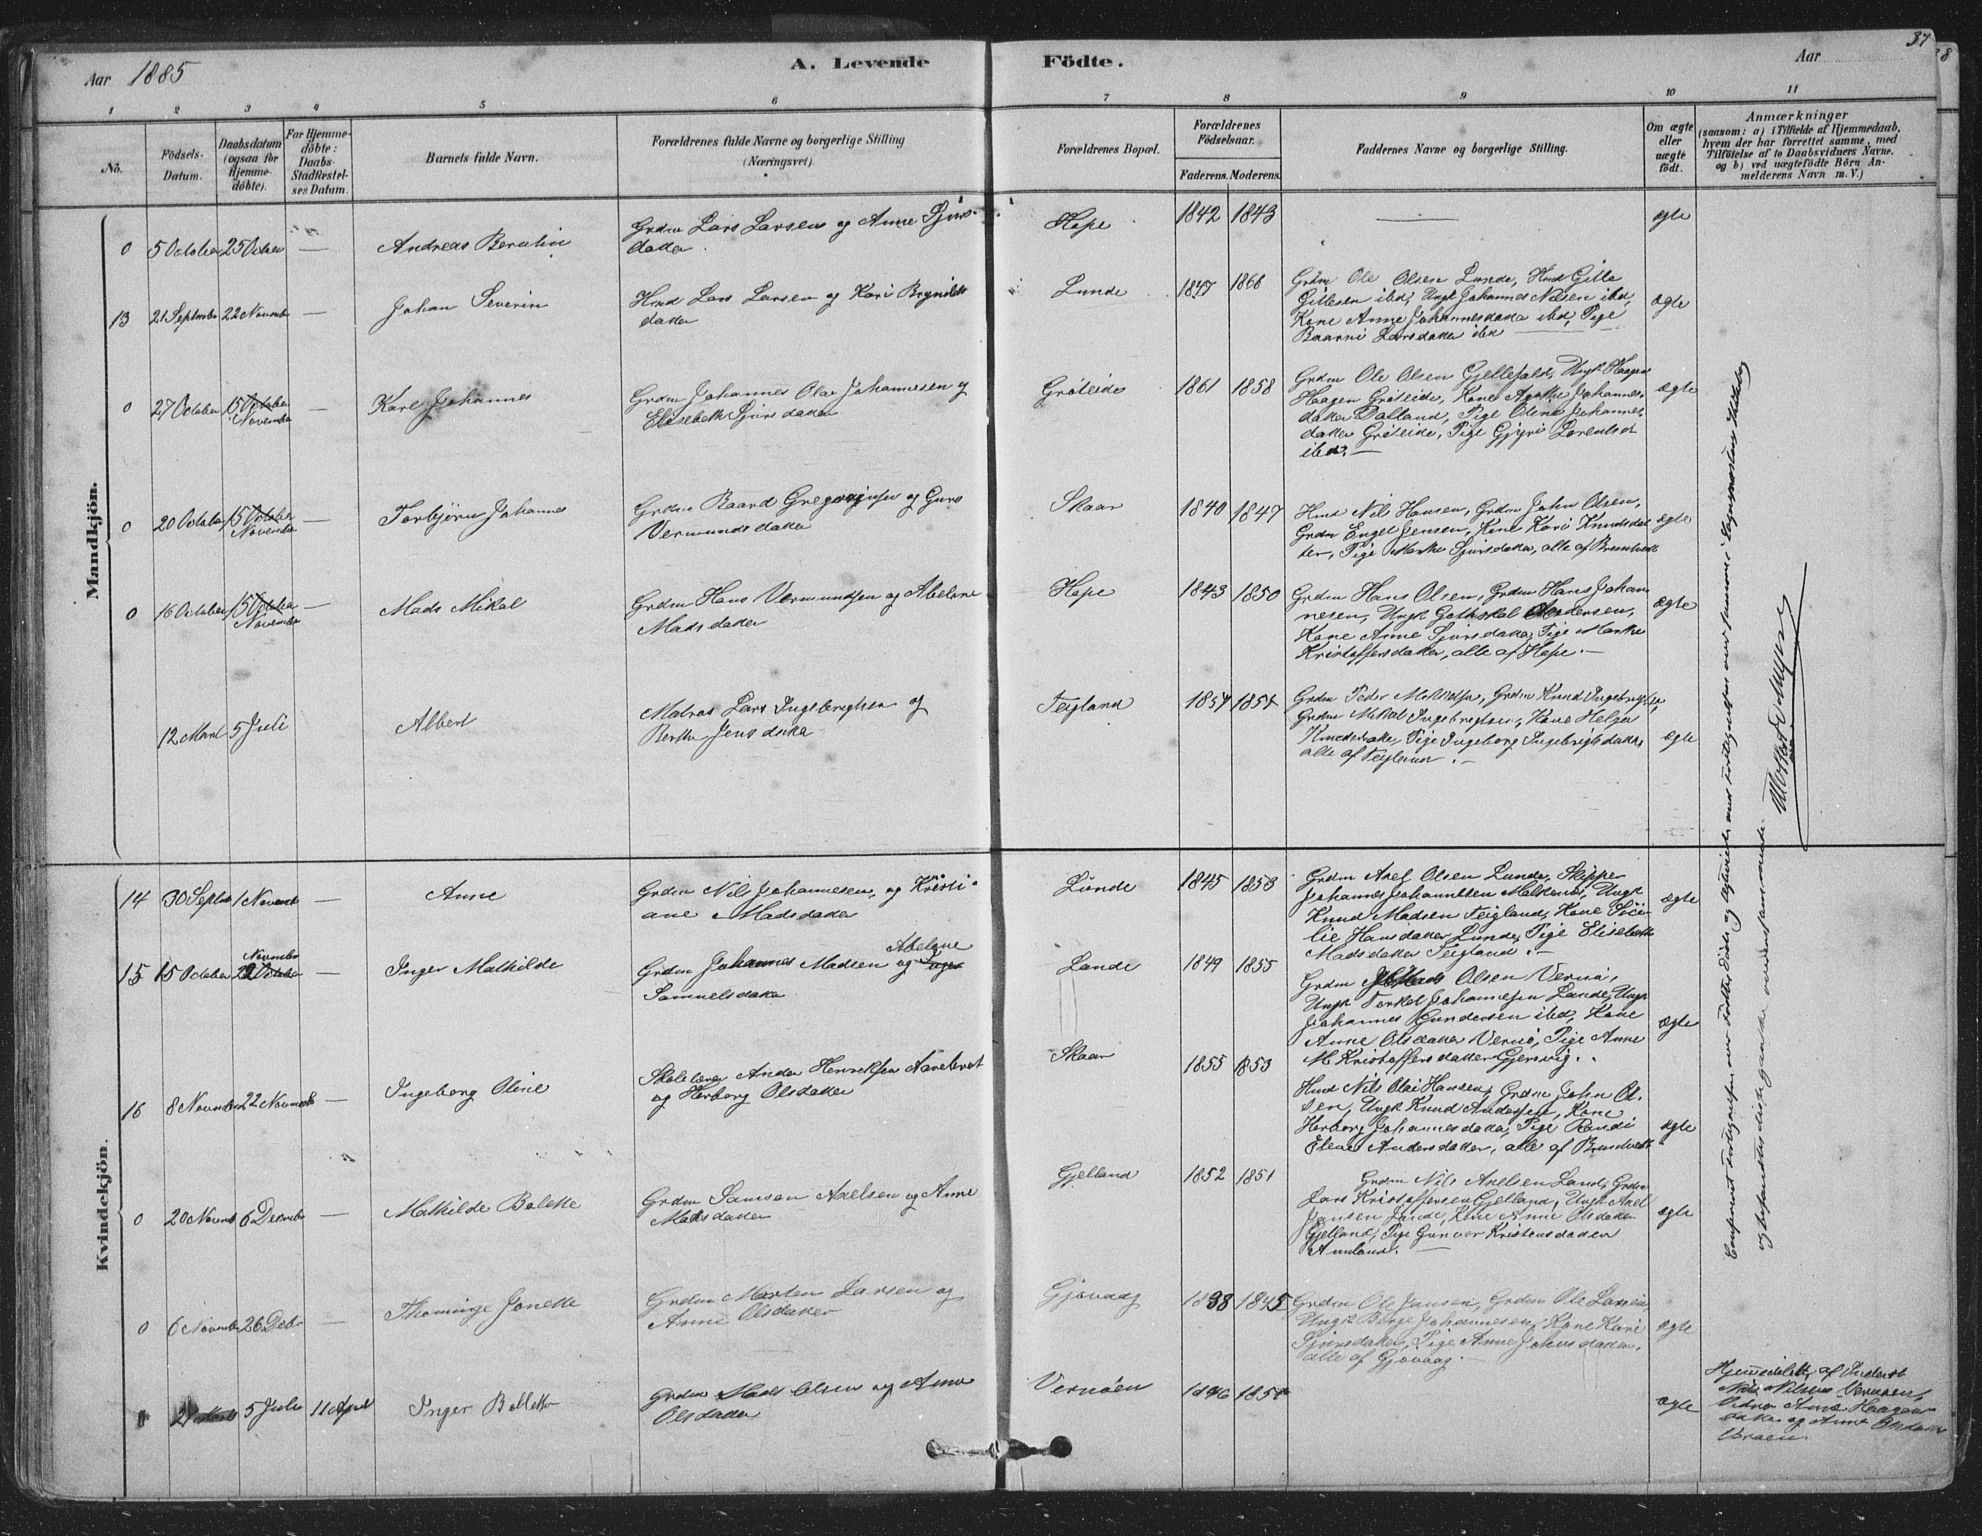 Aar 1885
A. Levende Födte.
Aar
37
1 2 3 4 5 6 7 8 9 10 11
No.
Födsels-Datum.
Daabsdatum (ogsaa for Hjemme-döbte).
For Hjemme-döbte: Daabs-Stadfæstel-ses Datum.
Barnets fulde Navn.
Forældrenes fulde Navne og borgerlige Stilling
(Næringsvei).
Forældrenes Bopæl.
Forældrenes Födselsaar.
Faderens. Moderens.
Faddernes Navne og borgerlige Stilling.
Om ægte eller uægte födt.
Anmærkninger
(saasom: a) i Tilfælde af Hjemmedaab,
hvem der har forrettet samme, med
Tilföielse af to Daabsvidners Navne.
og b) ved uægtefödte Börn An-
melderens Navn m. V.)
Mandkjön.
0 5 October 25 October — Andreas Berntin
Grdm Lars Larsen og Anne Sjurs-
datter
Hope 1842 1843 — ægte
13 21 Septembr 22 Novembr — Johan Severin
Hmd Lars Larsen og Kari Brynilds
datter
Lunde 1847 1866
Grdm Ole Olsen Lunde, Hmd Gitle
Gitlesen ibd, Ungk Johannes Nilsen ibd,
Kone Anne Johannesdatter ibd, Pige
Baarni Larsdatter ibd
ægte
0 27 October 15 October Novembr — Karl Johannes
Grdm Johannes Olai Johannesen og
Elisebeth Sjursdatter
Gröteide 1861 1858
Grdm Ole Olsen Gjellefald, Ungk Haagen
Haagen Gröteide, Kone Agathe Johannes-
datter Dalland, Pige Oline Johannes-
datter Gröteide, Pige Gjyri Lorentsd
ibd. —
ægte
0 20 October 15 October Novembr — Torbjörn Johannes
Grdm Baard Gregoriusen og Guro
Vermundsdatter
Skaar 1840 1847
Hmd Nil Hansen, Grdm John Olsen,
Grdm Engel Jensen, Kone Kari Knudsdat
ter, Pige Marthe Sjursdatter, alle af Bruntveit
ægte
0 16 October 15 October Novembr — Mads Mikal
Grdm Hans Vermundsen og Abelone
Madsdatter
Hope 1843 1850
Grdm Hans Olsen, Grdm Hans Johan
nesen, Ungk Gothskal Andersen,
Kone Anne Sjursdatter, Pige Marthe
Kristoffersdatter, alle af Hope. —
ægte
12 Marts 5 Juli Albert
Matros Lars Ingebrigtsen og
Berthe Jensdatter
Teigland 1854 1854
Grdm Peder Mikkelsen, Grdm Knud Ingebrigtsen,
Grdm Mikkel Ingebrigtsen, Kone Helga
Knudsdatter, Pige Ingeborg Ingebrigtsdatter
alle af Teigland. —
ægte
Kvindekjön.
14 30 Septbr 1 Novembr — Anne
Grdm Nils Johannesen, og Kristi-
ane Madsdatter
Lunde 1845 1853
Grdm Axel Olsen Lunde, Skipper
Johannes Johannesen Malkenes, Ungk
Knud Madsen Teigland, Kone Sici-
lie Hansdatter Lunde, Pige Elisebeth
Madsdatter Teigland. —
ægte
15 15 October 22 October Novembr — Inger Mathilde
Grdm Johannes Madsen og Inger Abelone
Samuelsdatter
Lunde 1849 1855
Grdm Mads Olsen Vernö,
Ungk Torkel Johannesen Lunde, Ungk
Johannes Gundersen ibd, Kone
Anne Olsdatter Vernö, Pige Anne
M Kristoffersdatter Gjersvig.
ægte
16 8 Novembr 22 Novembr — Ingeborg Oline
Skolelærer Anders Henriksen Aarebrot
og Herborg Olsdatter
Skaar 1855 1853
Hmd Nils Olai Hansen, Grdm John Ol-
sen, Ungk Knud Andersen, Kone
Herborg Johannesdatter, Pige Randi
Elene Andersdatter, alle af Bruntveit
ægte
0 20 Novembr 6 Decembr — Mathilde Bolette
Grdm Samson Axelsen og Anne
Madsdatter
Gjelland 1852 1851
Grdm Nils Axelsen Lande, Grdm
Lars Kristoffersen Gjelland, Ungk Axel
Jansen Lande, Kone Anne Olsdatter
Gjelland, Pige Gunvor Kristensdatter
Amland. —
ægte
0 6 November 26 Debr Thomine Jonette
Grdm Morten Larsen og
Anne Olsdatter
Gjövaag 1838 1845
Grdm Ole Jansen, Grdm Ole Larsen
Ungk Börge Johannesen, Kone Kari
Sjursdatter, Pige Anne Johnsdatter,
alle af Gjövaag. —
ægte
21 Marts 5 Julie 11 April Inger Bollette
Grdm Mads Olsen og Anne
Olsdatter
Vernöen 1846 1851 ægte
Hjemmedöbt af
Nils Nilsen Vernöen,
Vidner Anna Haagens
datter og Anne Olsdatter